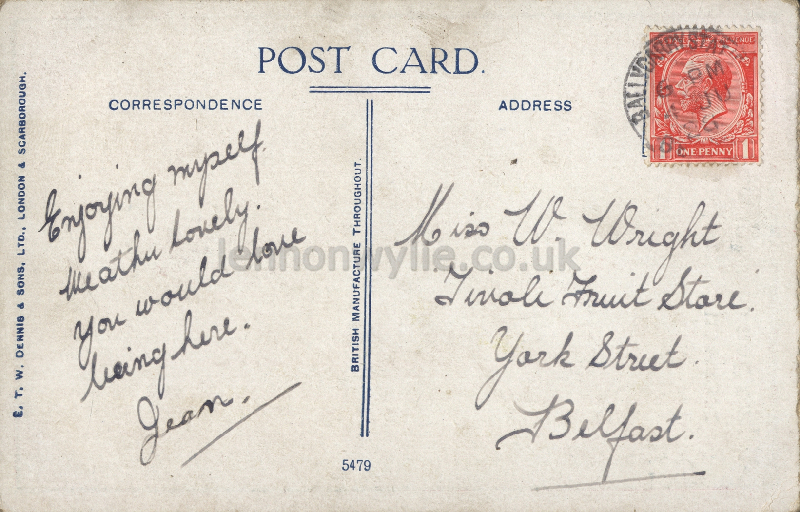 POST CARD.
CORRESPONDENCE
ADDRESS
Enjoying myself.
Weather Lovely.
You would love
being here.
Jean.
Miss W. Wright
Tivoli Fruit Store.
York Street.
Belfast.
E. T. W. DENNIS & SONS, LTD., LONDON & SCARBOROUGH.
BRITISH MANUFACTURE THROUGHOUT.
5479
ONE PENNY
1
lennonwylie.co.uk